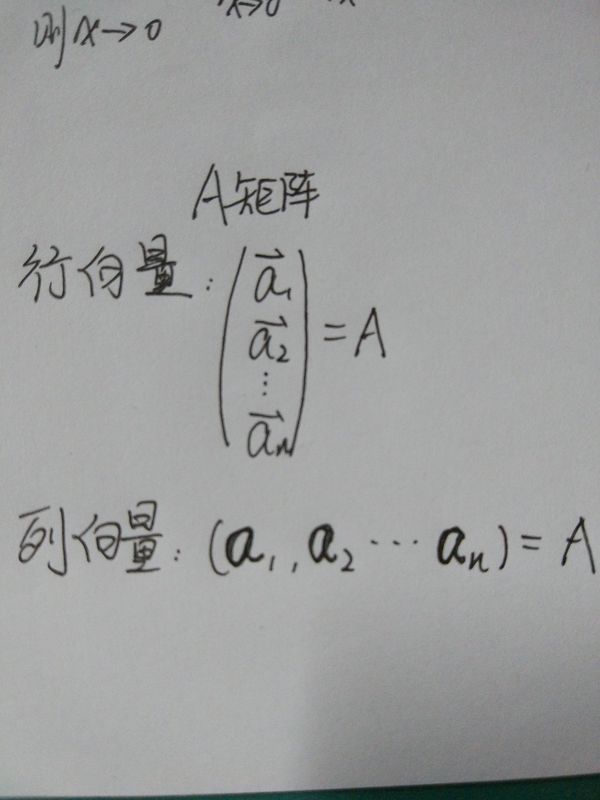 则x→0 x→0
A矩阵
行向量:(a⃗₁
a⃗₂
⋮
a⃗ₙ) = A
列向量:(a₁, a₂ ⋯ aₙ) = A